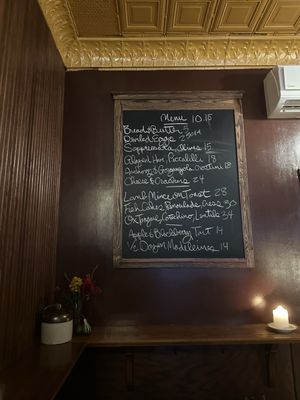 Menu 10.15
Bread & Butter 5
Deviled Eggs
Soppressata, Olives 15
Glazed Ham, Piccalilli 18
& Gorgonzola Crostini 18
Cheese & Crackers 24
Lamb Mince on Toast 28
Fish Cakes, Remoulade, Cress 30
Ox Tongue, Cotechino, Lentils 34
Apple & Blackberry Tart 14
1/2 Dozen Madeleines 14